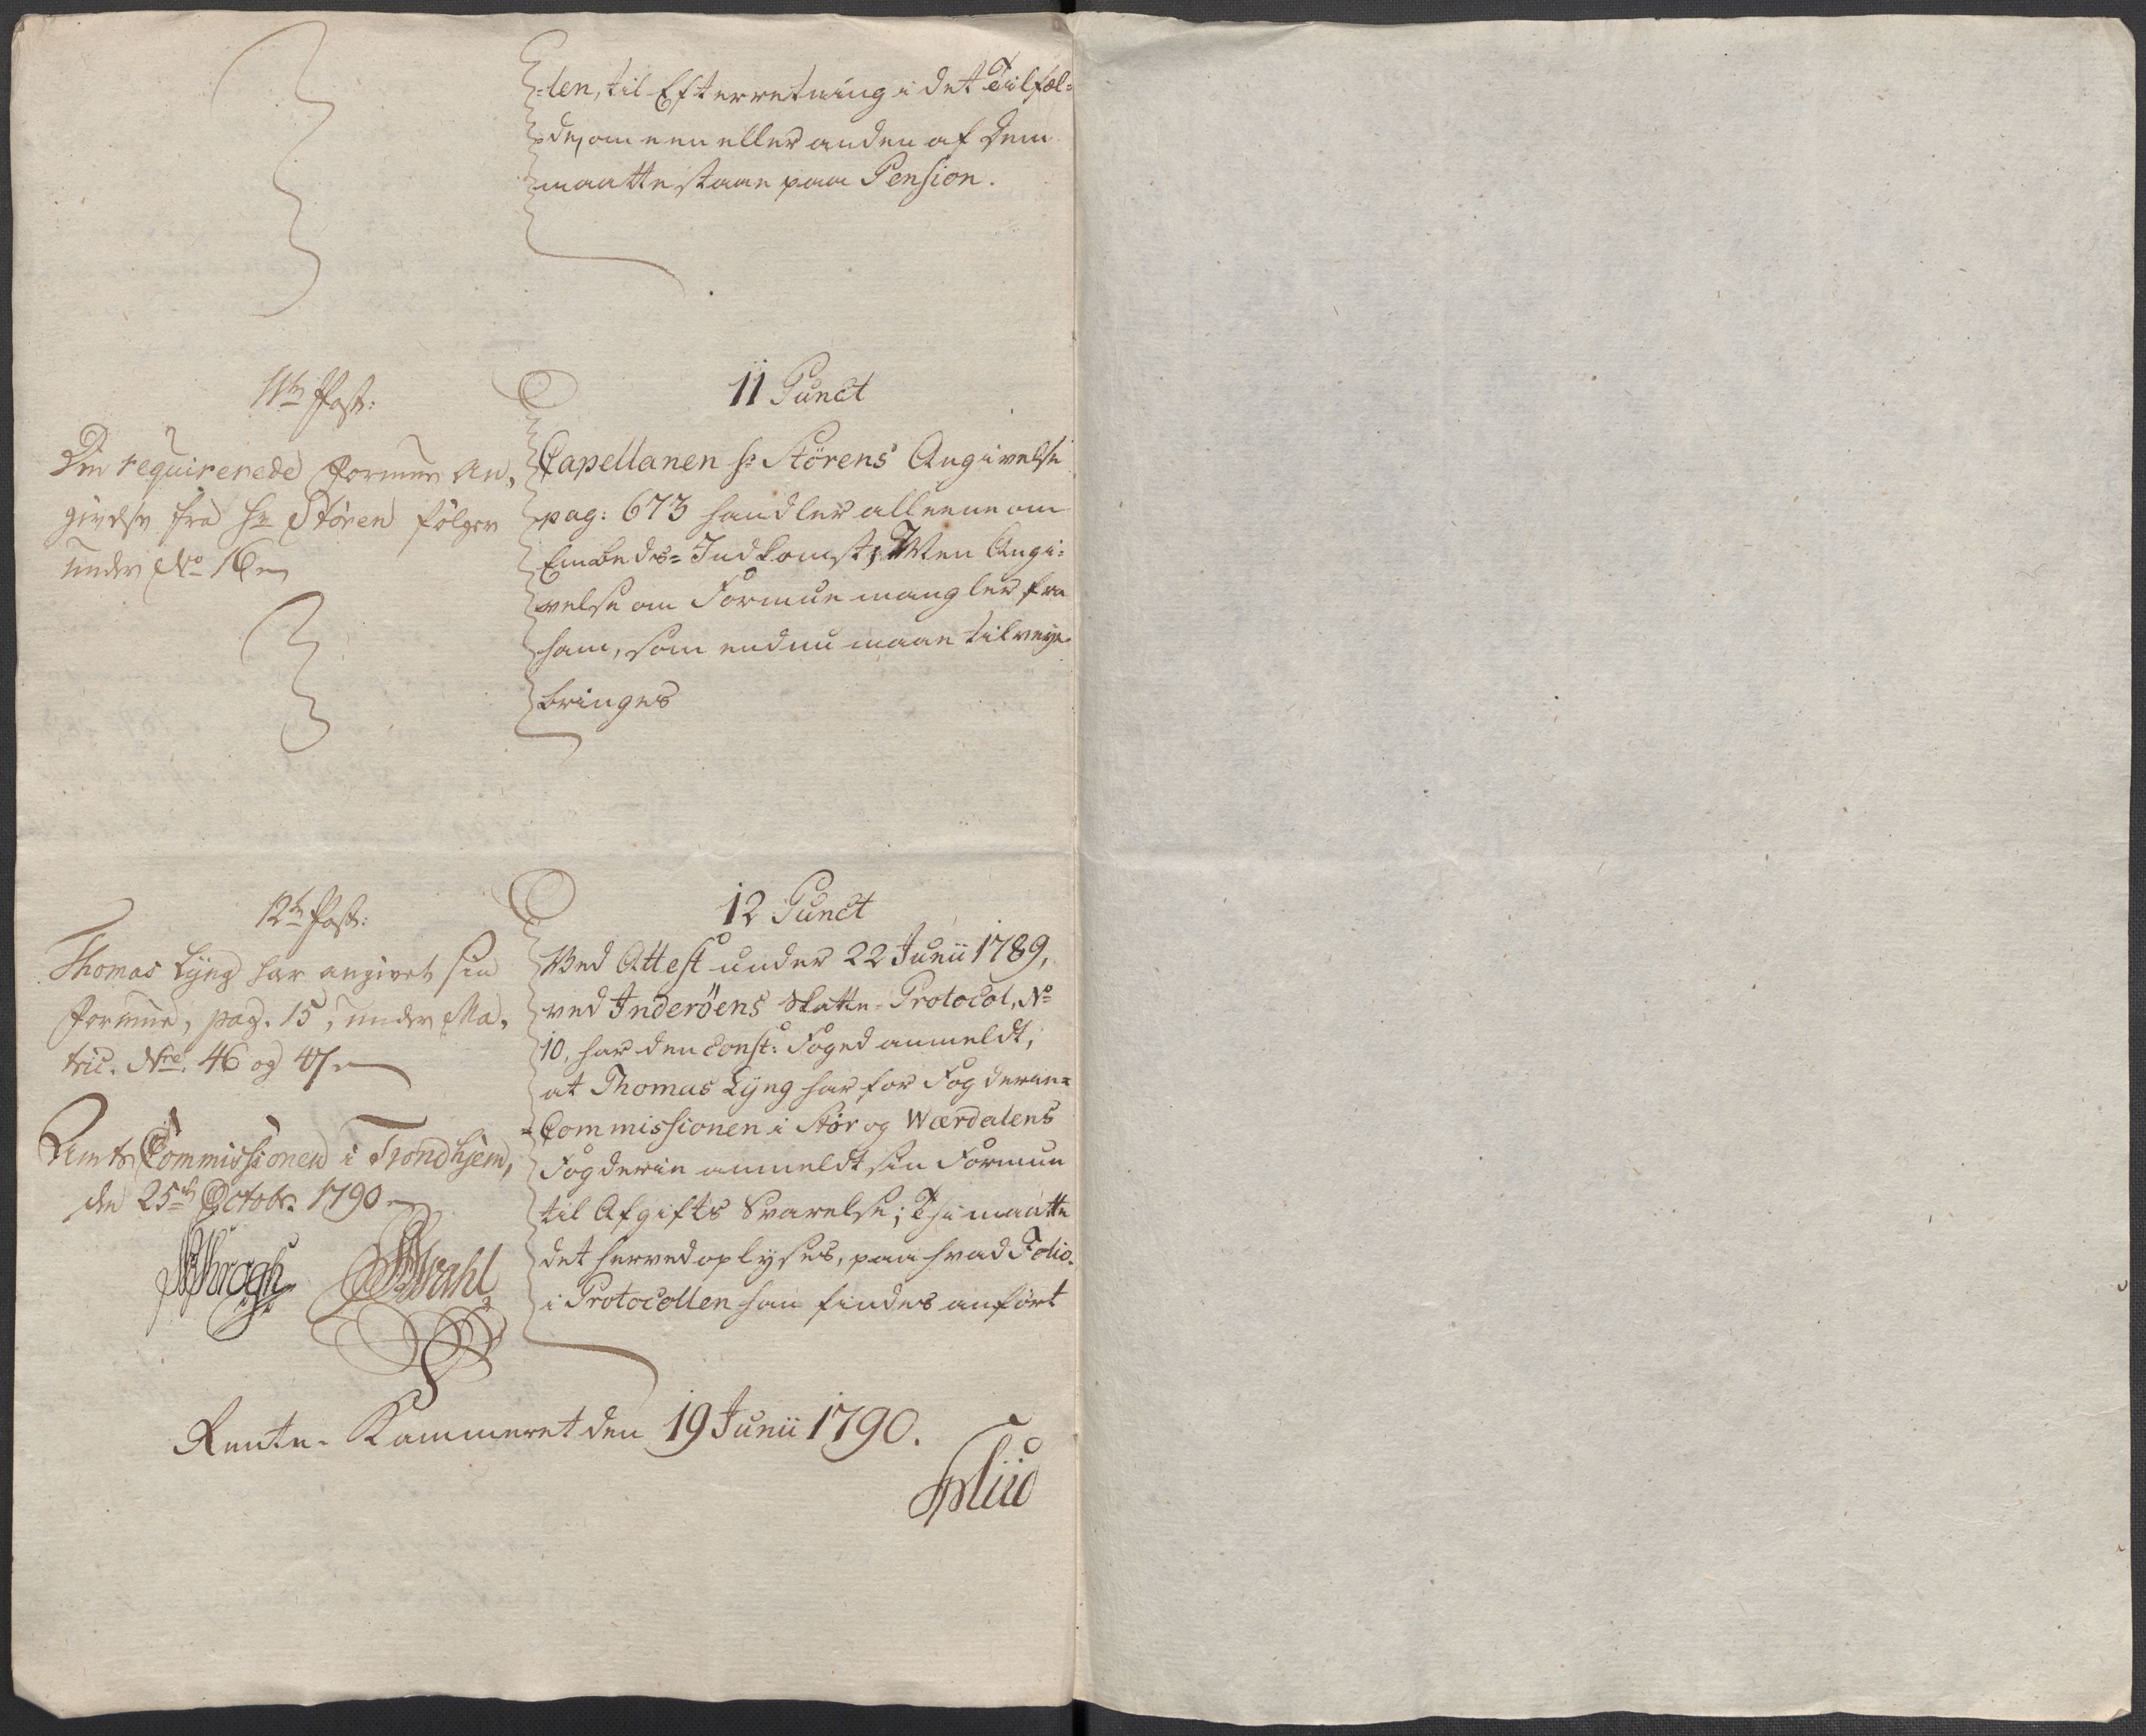 -len, til Efterretning i det Tilfæl-
de, om een eller anden af dem
maatte staae paa Pension.
11te Post:
Den requirerede Formue An-
givelse fra Hr Stören fölger
under No 16
11 Punct
Capellanen Hr Störens Angivelse
pag: 673 handler alleene om
Embeds-Indkomst; Men Angi-
velse om Formue mangler fra
ham, som endnu maae tilveye-
bringes
12te Post:
Thomas Lÿng har angivet sin
Formue, pag. 15, under Ma-
tric. Nre. 46 og 47
Amts Commissionen i Trondhjem,
den 25de Octobr. 1790
12 Punct
Ved Attest under 22 Junii 1789,
ved Inderöens Skatte-Protocol, No
10, har den const: Foged anmeldt,
at Thomas Lÿng har for Fogderie-
Commissionen i Stör og Wærdalens
Fogderie anmeldt sin Formue
til Afgifts Svarelse; Thi maatte
det herved oplyses, paa hvad Folio
i Protocollen han findes anfört
Rente-Kammeret den 19 Junii 1790.